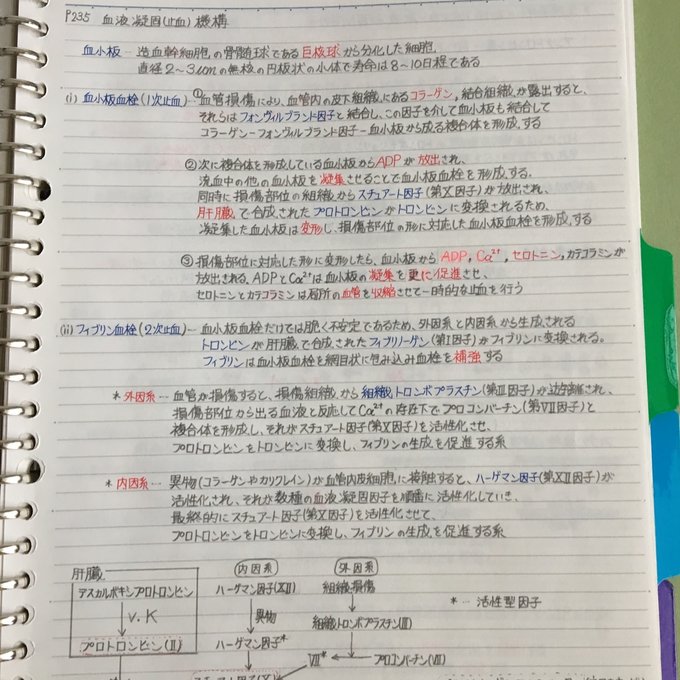 P235 血液凝固(止血)機構
血小板… 造血幹細胞の骨髄球である巨核球から分化した細胞.
直径2~3.0㎛の無核の円板状の小体で寿命は8~10日程である
(i) 血小板血栓(1次止血)―①血管損傷により、血管内の皮下組織にあるコラーゲン, 結合組織が露出すると、
それらはフォンヴィルブランド因子と結合し、この因子を介して血小板も結合して
コラーゲン-フォンヴィルブランド因子-血小板から成る複合体を形成する
②次に複合体を形成している血小板からADPが放出され、
流血中の他の血小板を凝集させることで血小板血栓を形成する.
同時に損傷部位の組織からスチュアート因子(第Ⅹ因子)が放出され、
肝臓で合成されたプロトロンビンがトロンビンに変換されるため、
凝集した血小板は変形し、損傷部位の形に対応した血小板血栓を形成する
③ 損傷部位に対応した形に変形したら、血小板から ADP, Ca²⁺, セロトニン,カテコラミンが
放出される. ADPとCa²⁺は血小板の凝集を更に促進させ、
セロトニンとカテコラミンは局所の血管を収縮させて一時的な止血を行う
(ii) フィブリン血栓(2次止血)― 血小板血栓だけでは脆く不安定であるため、外因系と内因系から生成される
トロンビンが肝臓で合成されたフィブリノーゲン(第Ⅰ因子)がフィブリンに変換される。
フィブリンは血小板血栓を網目状に包み込み血栓を補強する
* 外因系 … 血管が損傷すると、損傷組織から組織トロンボプラスチン(第Ⅲ因子)が遊離され、
損傷部位から出る血液と反応してCa²⁺の存在下でプロコンバーチン(第Ⅶ因子)と
複合体を形成し、それがスチュアート因子(第Ⅹ因子)を活性化させ、
プロトロンビンをトロンビンに変換し、フィブリンの生成を促進する系
* 内因系 … 異物(コラーゲンやカリクレイン)が血管内皮細胞に接触すると、ハーゲマン因子(第ⅩⅡ因子)が
活性化され、それが数種の血液凝固因子を順番に活性化していき、
最終的にスチュアート因子(第Ⅹ因子)を活性化させて
プロトロンビンをトロンビンに変換し、フィブリンの生成を促進する系
肝臓
デスカルボキシプロトロンビン
V.K
プロトロンビン(Ⅱ)
内因系
ハーゲマン因子(ⅩⅡ)
異物
ハーゲマン因子*
外因系
組織損傷
組織トロンボプラスチン(Ⅲ)
Ⅶ* プロコンバーチン(Ⅶ)
*… 活性型因子